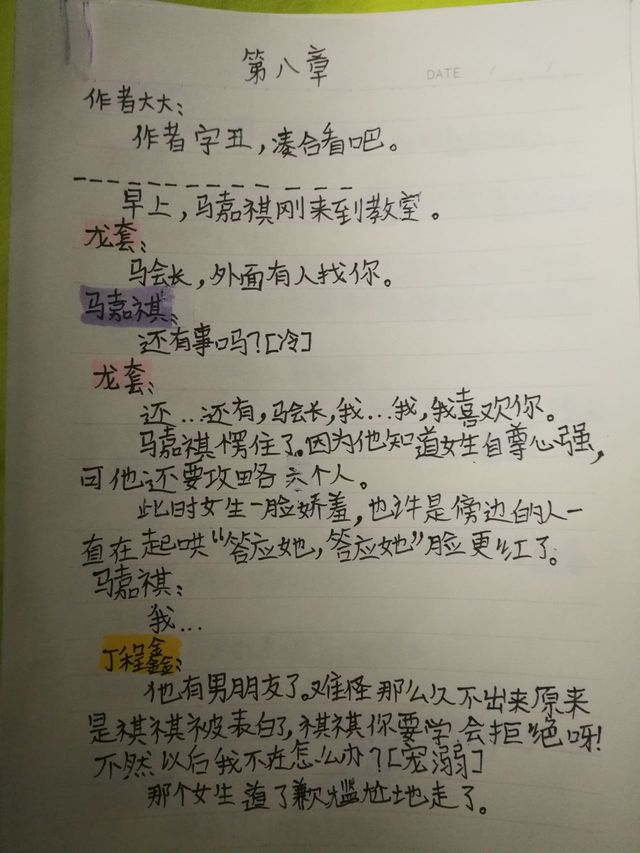 第八章
DATE / /
作者大大：
作者字丑，凑合看吧。
早上，马嘉祺刚来到教室。
龙套：
马会长，外面有人找你。
马嘉祺：
还有事吗？[冷]
龙套：
还...还有，马会长，我...我，我喜欢你。
马嘉祺愣住了。因为他知道女生自尊心强，
可他还要攻略六个人。
此时女生一脸娇羞，也许是傍边的人一
直在起哄“答应她，答应她”脸更红了。
马嘉祺：
我...
丁程鑫：
他有男朋友了。难怪那么久不出来原来
是祺祺被表白了，祺祺你要学会拒绝呀！
不然以后我不在怎么办？[宠溺]
那个女生道了歉尴尬地走了。